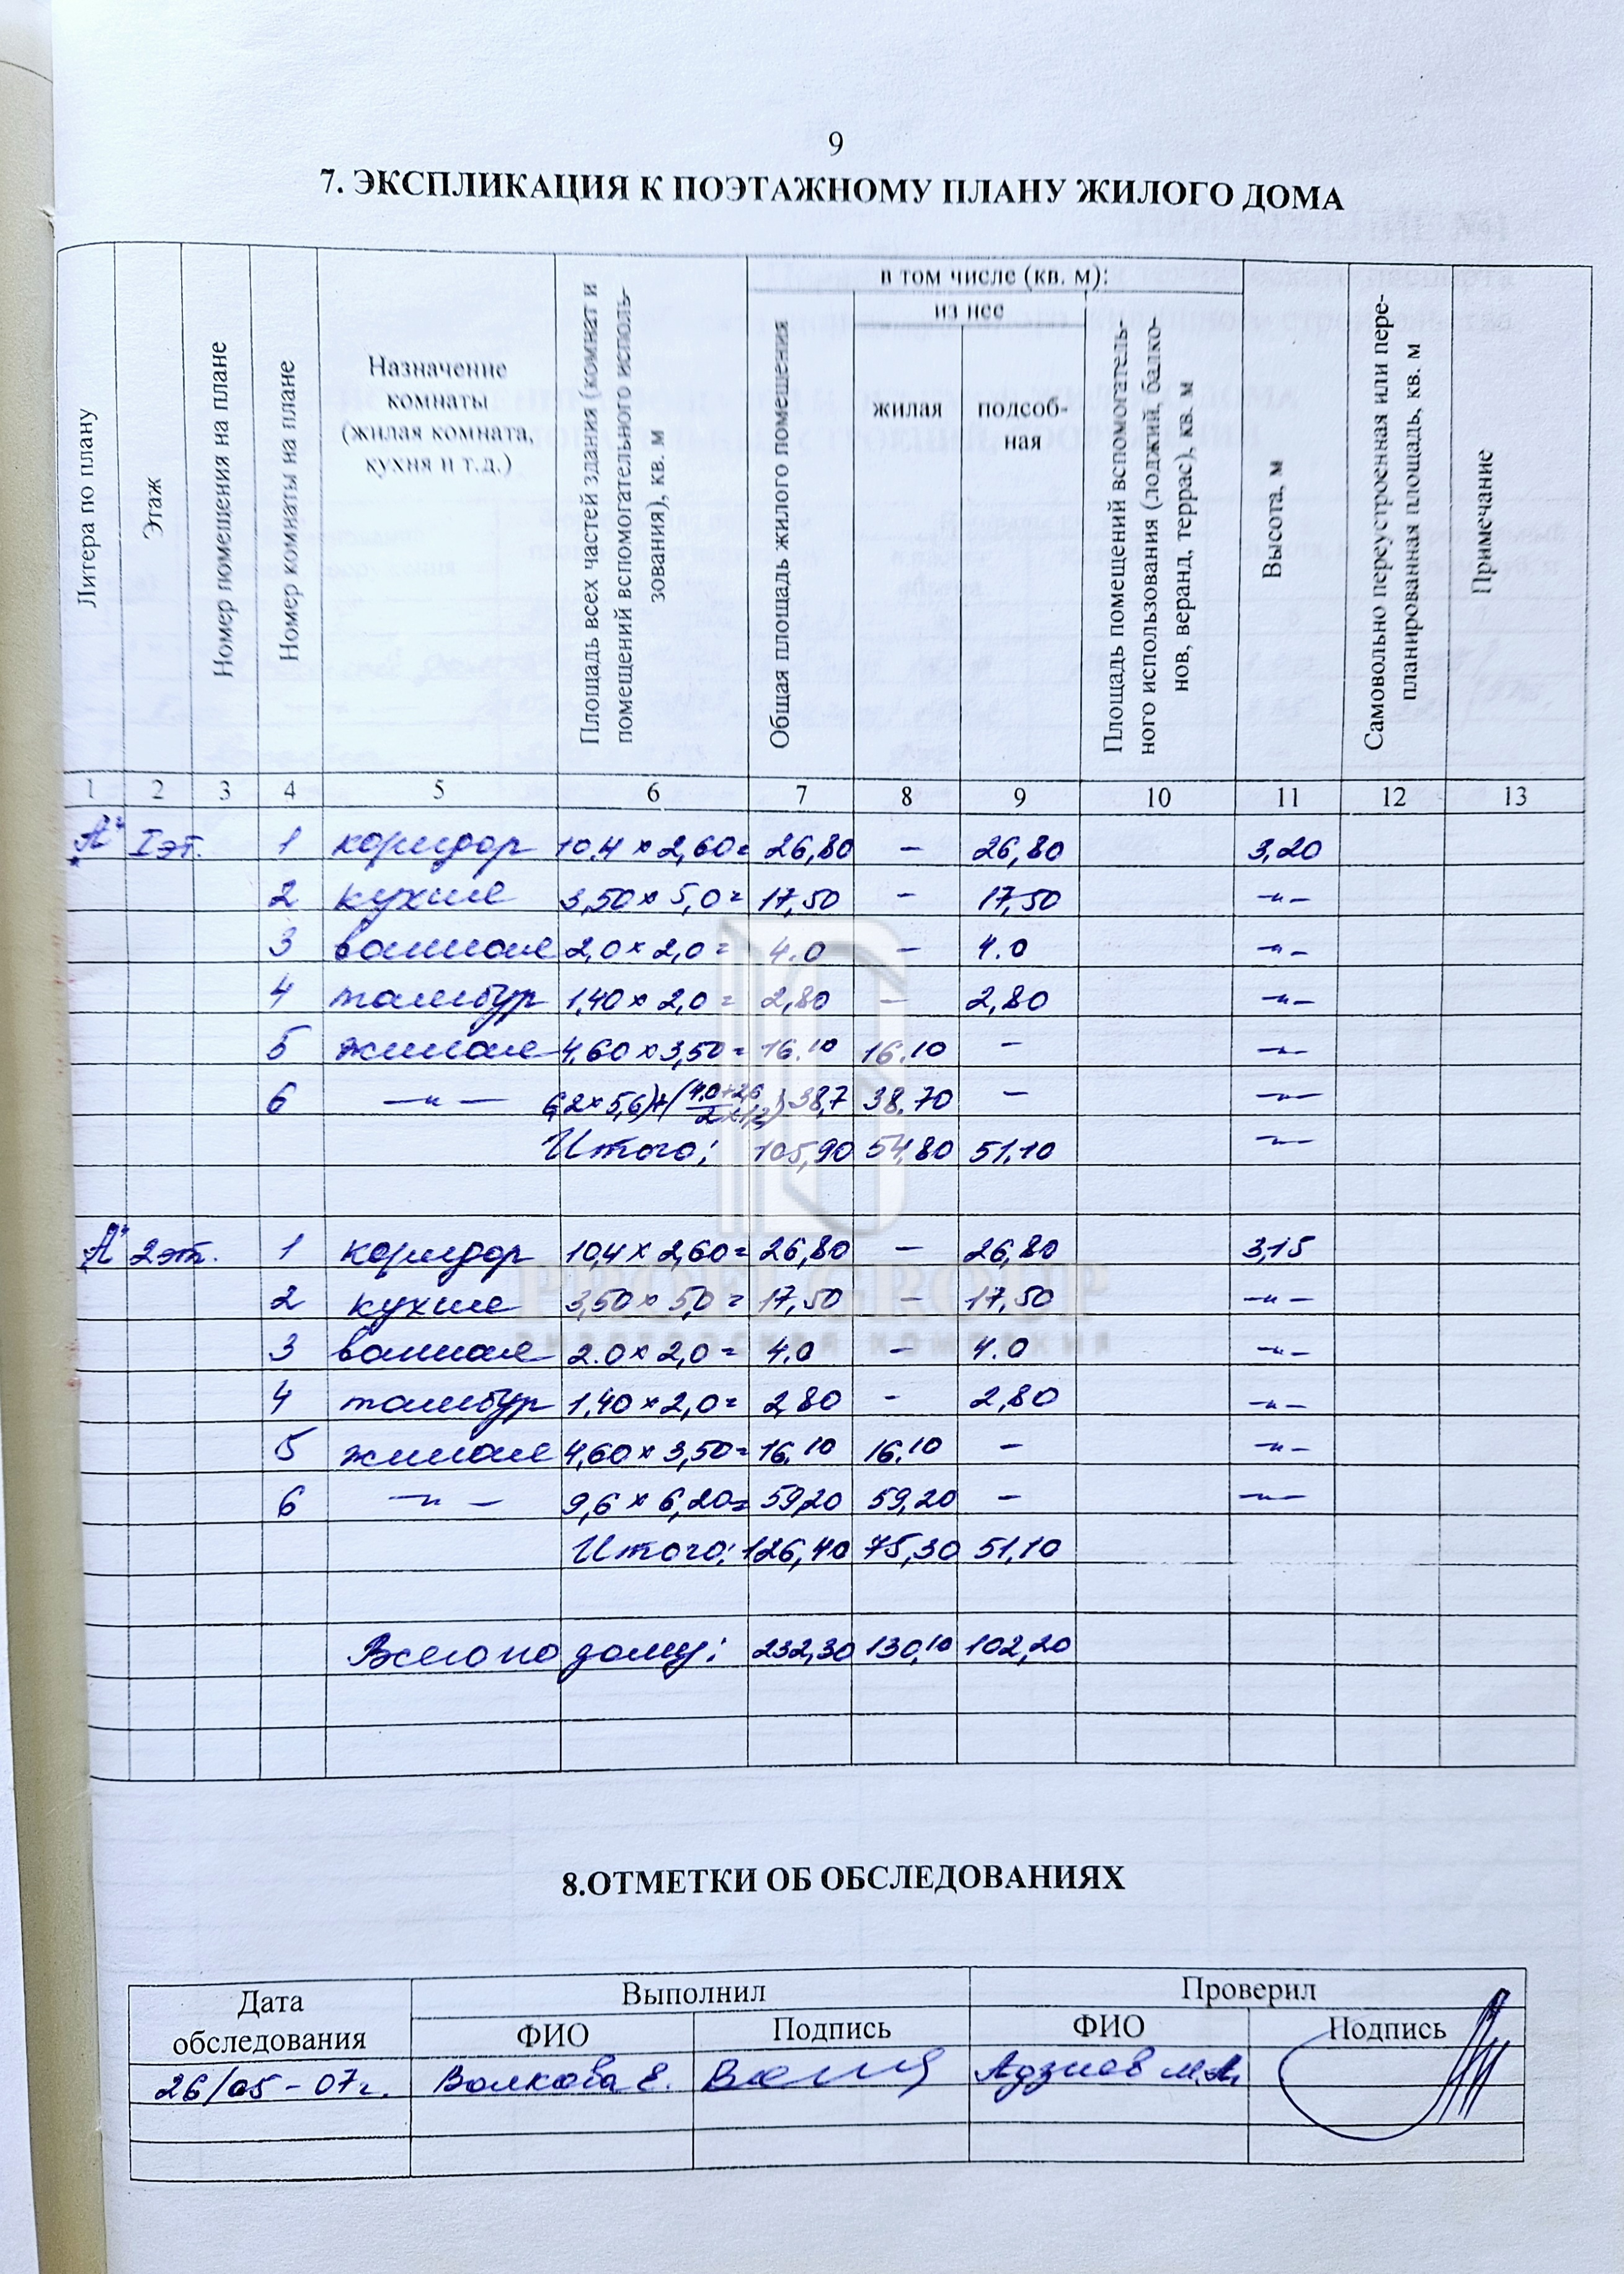 9
7. ЭКСПЛИКАЦИЯ К ПОЭТАЖНОМУ ПЛАНУ ЖИЛОГО ДОМА
Литера по плану
Этаж
Номер помещения на плане
Номер комнаты на плане
Назначение
комнаты
(жилая комната,
кухня и т.д.)
Площадь всех частей здания (комнат и
помещений вспомогательного исполь-
зования), кв. м
в том числе (кв. м):
Общая площадь жилого помещения
из нее
жилая
подсоб-
ная
Площадь помещений вспомогатель-
ного использования (лоджий, балко-
нов, веранд, террас), кв. м
Высота, м
Самовольно переустроенная или пере-
планированная площадь, кв. м
Примечание
1 2 3 4 5 6 7 8 9 10 11 12 13
„А" I эт. 1 коридор 10,4 × 2,60 = 26,80 – 26,80 3,20
2 кухня 3,50 × 5,0 = 17,50 – 17,50 –"–
3 ванная 2,0 × 2,0 = 4.0 – 4.0 –"–
4 тамбур 1,40 × 2,0 = 2,80 – 2,80 –"–
5 жилая 4,60 × 3,50 = 16.10 16.10 – –"–
6 –"– 6,2 × 5,6)+(4,0+2,6 38,7 38.70 – –"–
Итого: 105,90 54,80 51,10 –"–
„А" 2 эт. 1 коридор 10,4 × 2,60 = 26,80 – 26,80 3,15
2 кухня 3,50 × 5,0 = 17,50 – 17,50 –"–
3 ванная 2.0 × 2,0 = 4.0 – 4.0 –"–
4 тамбур 1,40 × 2,0 = 2,80 – 2,80 –"–
5 жилая 4,60 × 3,50 = 16,10 16,10 – –"–
6 –"– 9,6 × 6,20 = 59,20 59,20 – –"–
Итого: 126,40 75,30 51,10
Всего по дому: 232,30 130,10 102,20
PROFI GROUP
РИЕЛТОРСКАЯ КОМПАНИЯ
8.ОТМЕТКИ ОБ ОБСЛЕДОВАНИЯХ
Дата
обследования
Выполнил
Проверил
ФИО Подпись ФИО Подпись
26/05-07г. Волкова Е. Адзиев М.А.